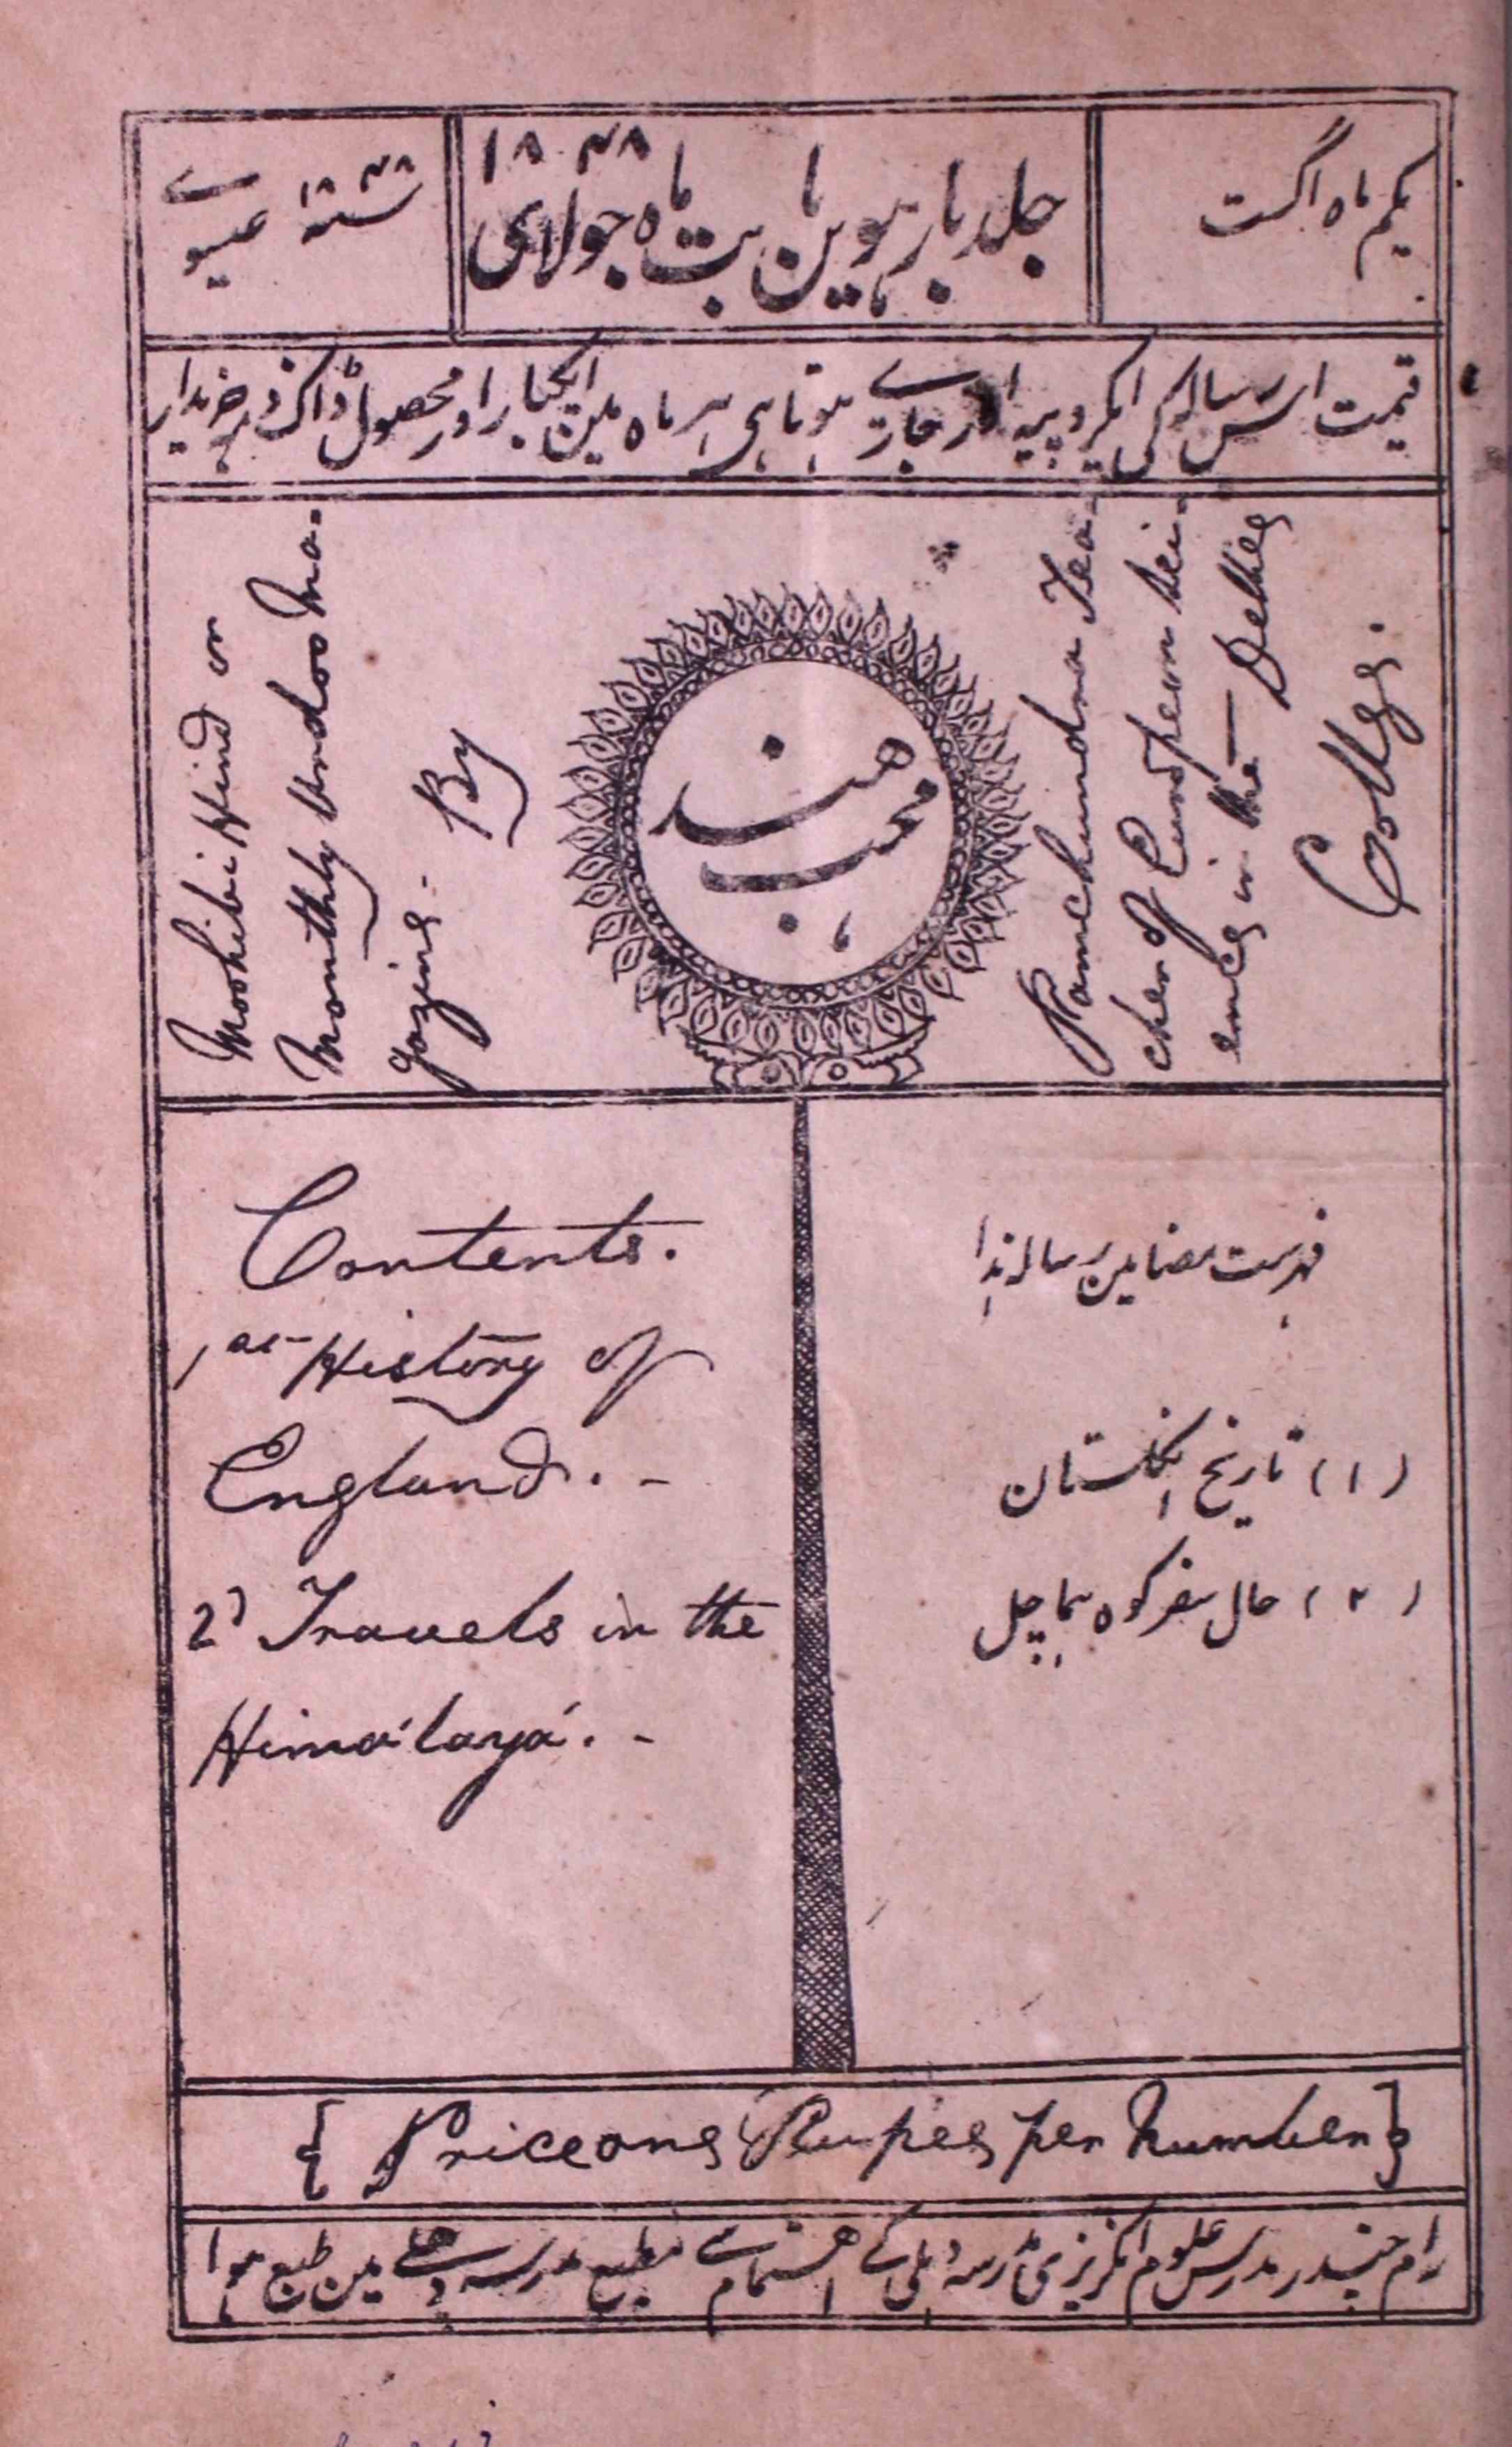 یکم ماہ اگست
جلد بارہوین بابت ماہ جولای ۱۸۴۸
سنہ ۱۸۴۸ عیسوے
قیمت اس رسالہ کی ایکروپیہ اور جارے ہوتا ہی ہر ماہ مین ایکبار اور محصول ڈاک ذمہ خریدار
Moohibi Hind or
Monthly Urdoo Ma-
gazine. By
محب ہند
Ramchundra Tea-
cher of European Sci-
ences in the Delhee
College.
Contents.
1st History of
England. -
2d Travels in the
Himálayá. -
فہرست مضامین رسالہ ہذا
(۱) تاریخ انگلستان
(۲) حال سفر کوہ ہماچل
{ Price one Rupee per Number }
رام چندر مدرس علوم انگریزی مدرسہ دہلی کے اہتمام سے مطبع مدرسہ دھلے مین طبع ہوا